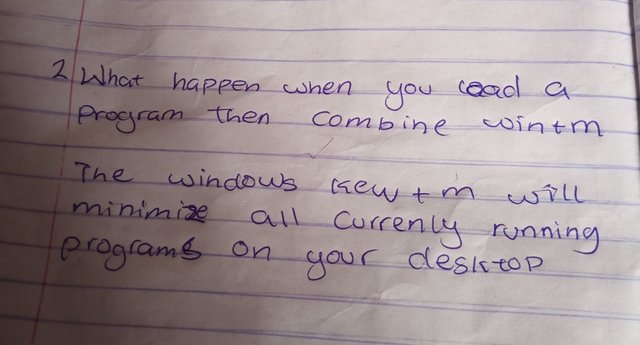 2 What happen when you load a
program then combine win+m
The windows kew + m will
minimize all currenly running
programs on your desktop